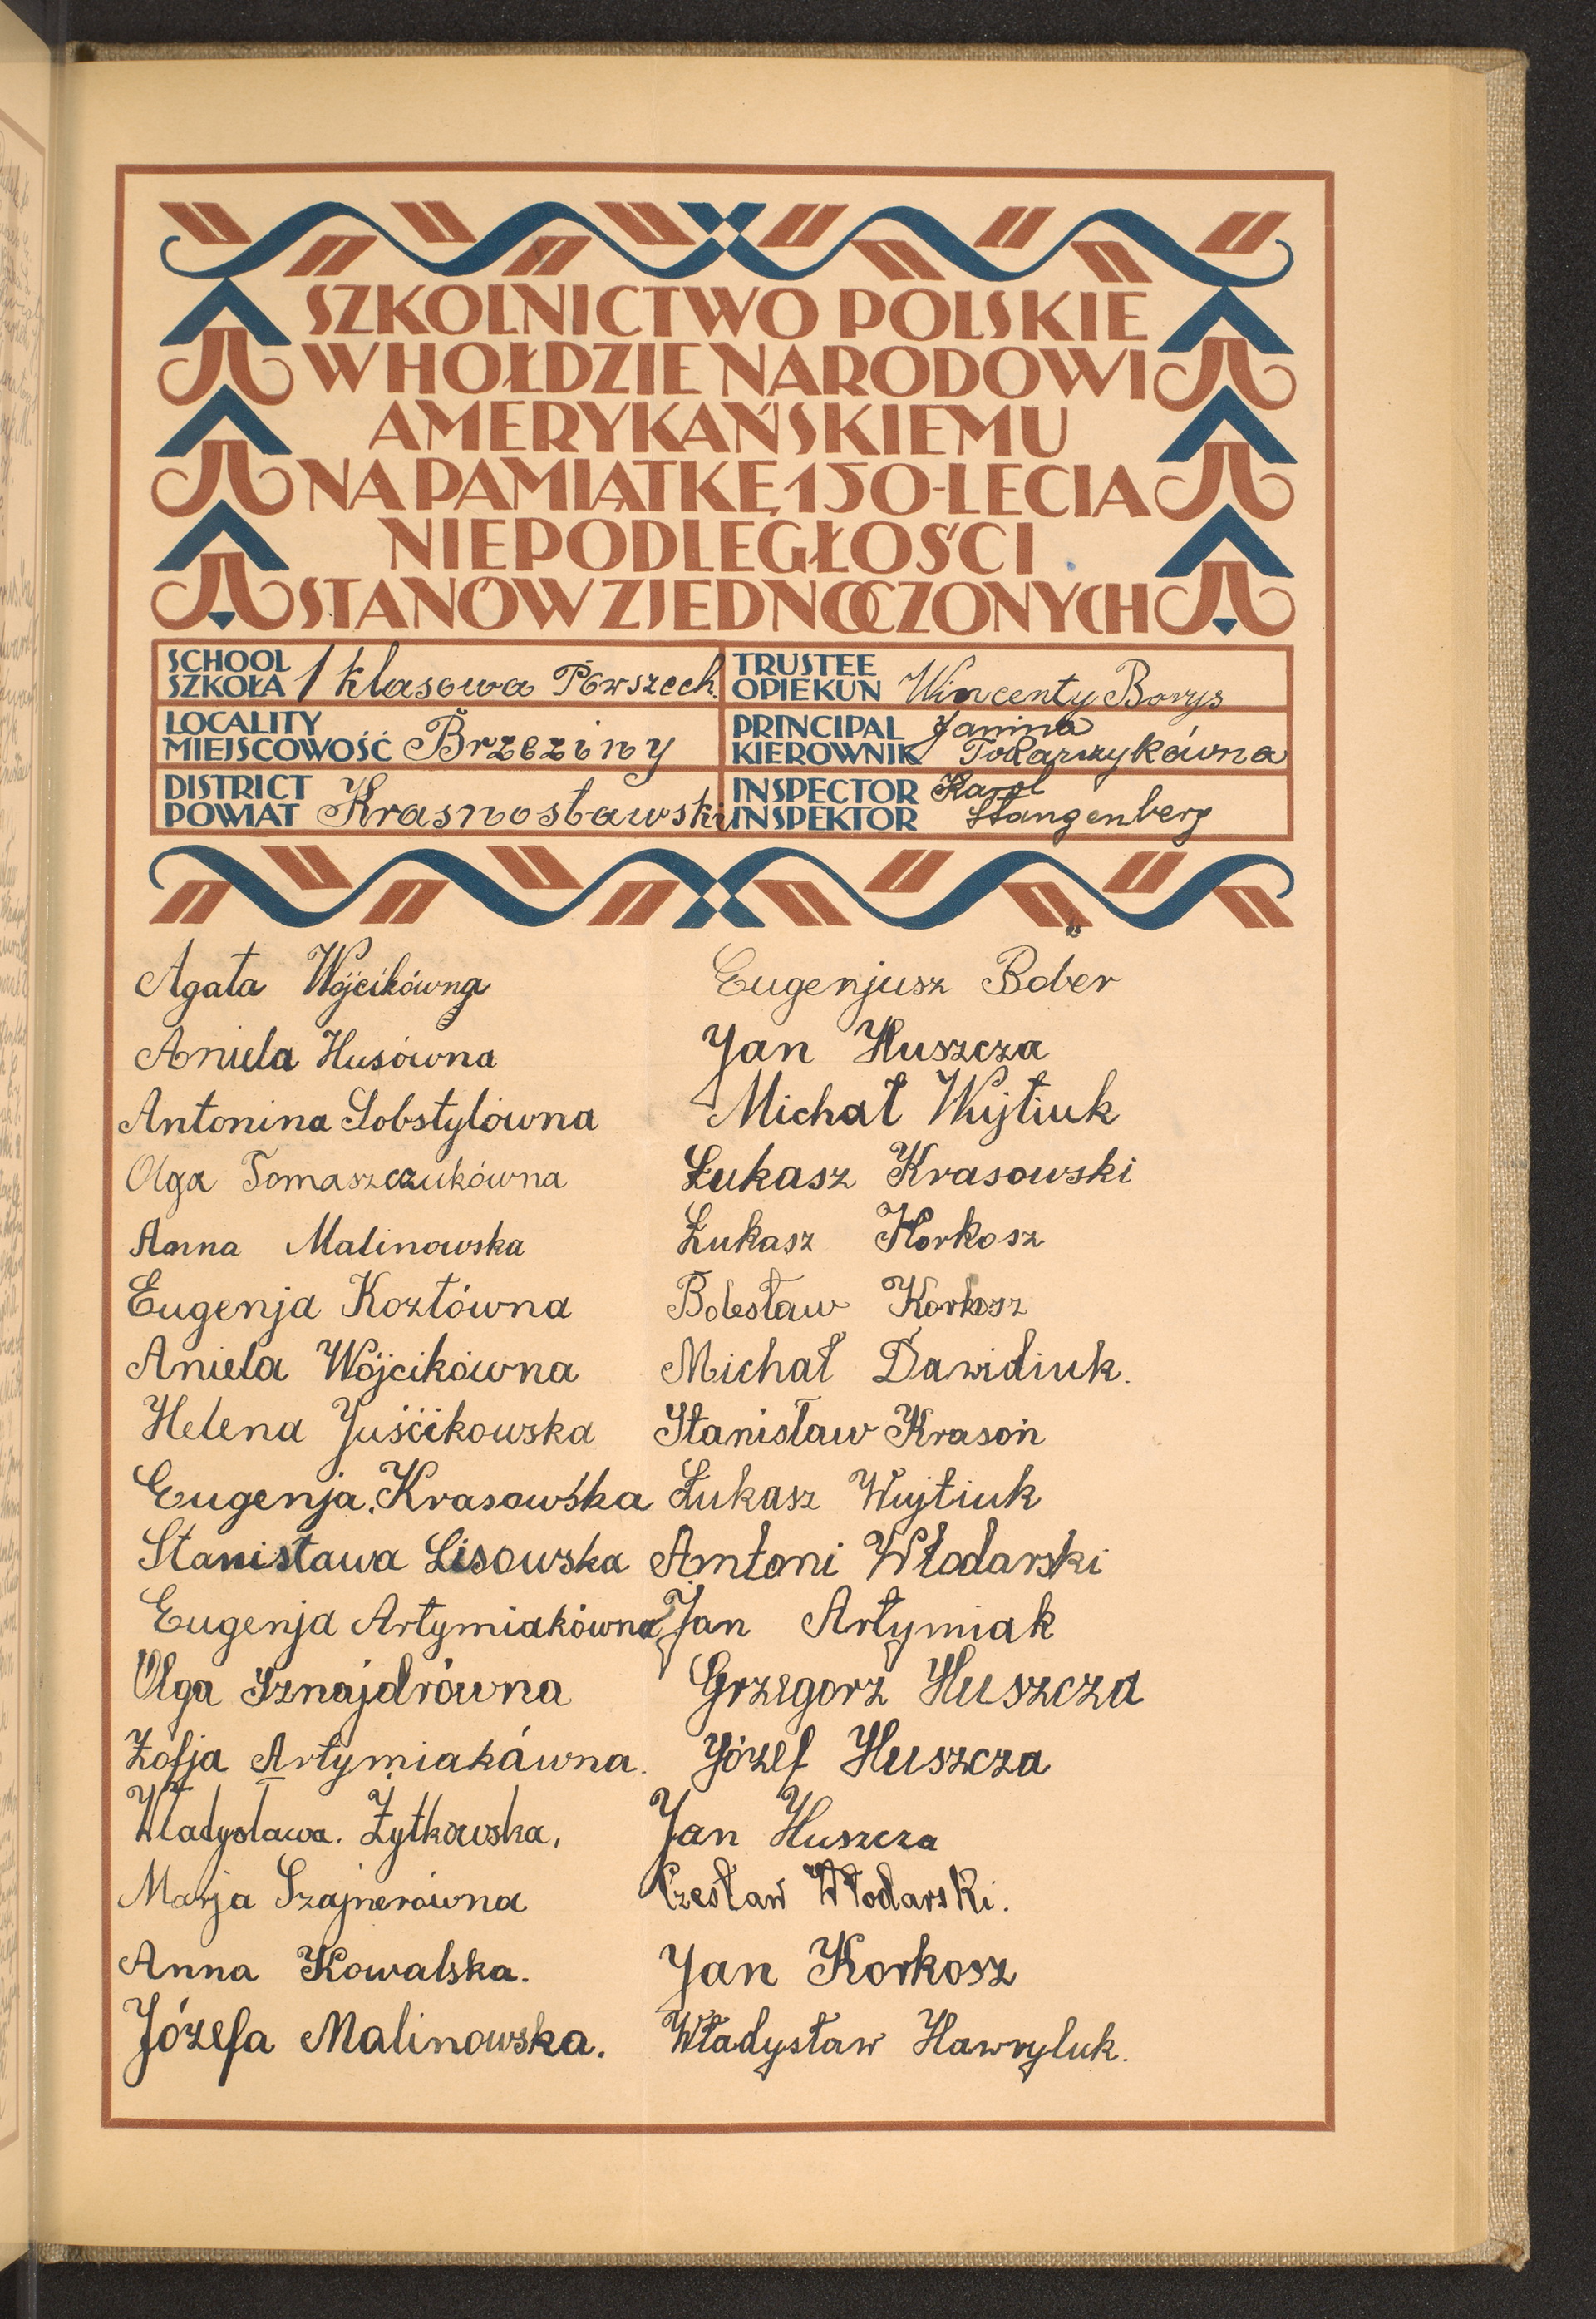 SZKOLNICTWO POLSKIE
W HOŁDZIE NARODOWI
AMERYKAŃSKIEMU
NA PAMIĄTKĘ 150-LECIA
NIEPODLEGŁOŚCI
STANÓW ZJEDNOCZONYCH
SCHOOL
SZKOŁA 1 klasowa Powszech.
TRUSTEE
OPIEKUN Wincenty Borys
LOCALITY
MIEJSCOWOŚĆ Brzeziny
PRINCIPAL Janina
KIEROWNIK Tokarzykówna
DISTRICT
POWIAT Krasnostawski
INSPECTOR Karol
INSPEKTOR Stangenberg
Agata Wójcikówna
Aniela Husówna
Antonina Sobstylówna
Olga Tomaszczukówna
Anna Malinowska
Eugenja Kozłówna
Aniela Wójcikówna
Helena Juśćikowska
Eugenja Krasowska
Stanisława Lisowska
Eugenja Artymiakówna
Olga Sznajdrówna
Zofja Artymiakówna.
Władysława. Żytkowska,
Marja Szajnerówna
Anna Kowalska.
Józefa Malinowska.
Eugenjusz Bober
Jan Huszcza
Michał Wujtiuk
Łukasz Krasowski
Łukasz Korkosz
Bolesław Korkosz
Michał Dawidiuk.
Stanisław Krasoń
Łukasz Wujtiuk
Antoni Włodarski
Jan Artymiak
Grzegorz Huszcza
Józef Huszcza
Jan Huszcza
Czesław Włodarski.
Jan Korkosz
Władysław Hawryluk.